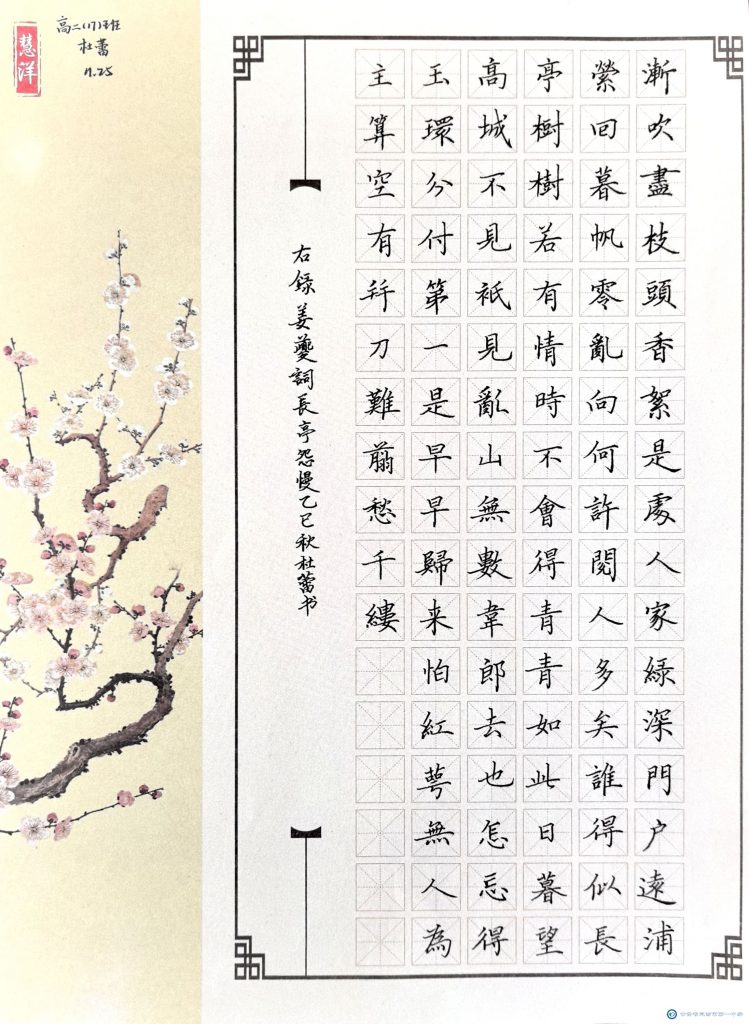 漸吹盡枝頭香絮是處人家綠深門户遠浦
縈回暮帆零亂向何許閱人多矣誰得似長
亭樹樹若有情時不會得青青如此日暮望
髙城不見衹見亂山無數韋郎去也怎忘得
玉環分付第一是早早歸来怕紅萼無人為
主算空有幷刀難翦愁千縷
右錄姜夔詞長亭怨慢乙巳秋杜蕾书
慧洋
高二(17)班
杜蕾
11.25